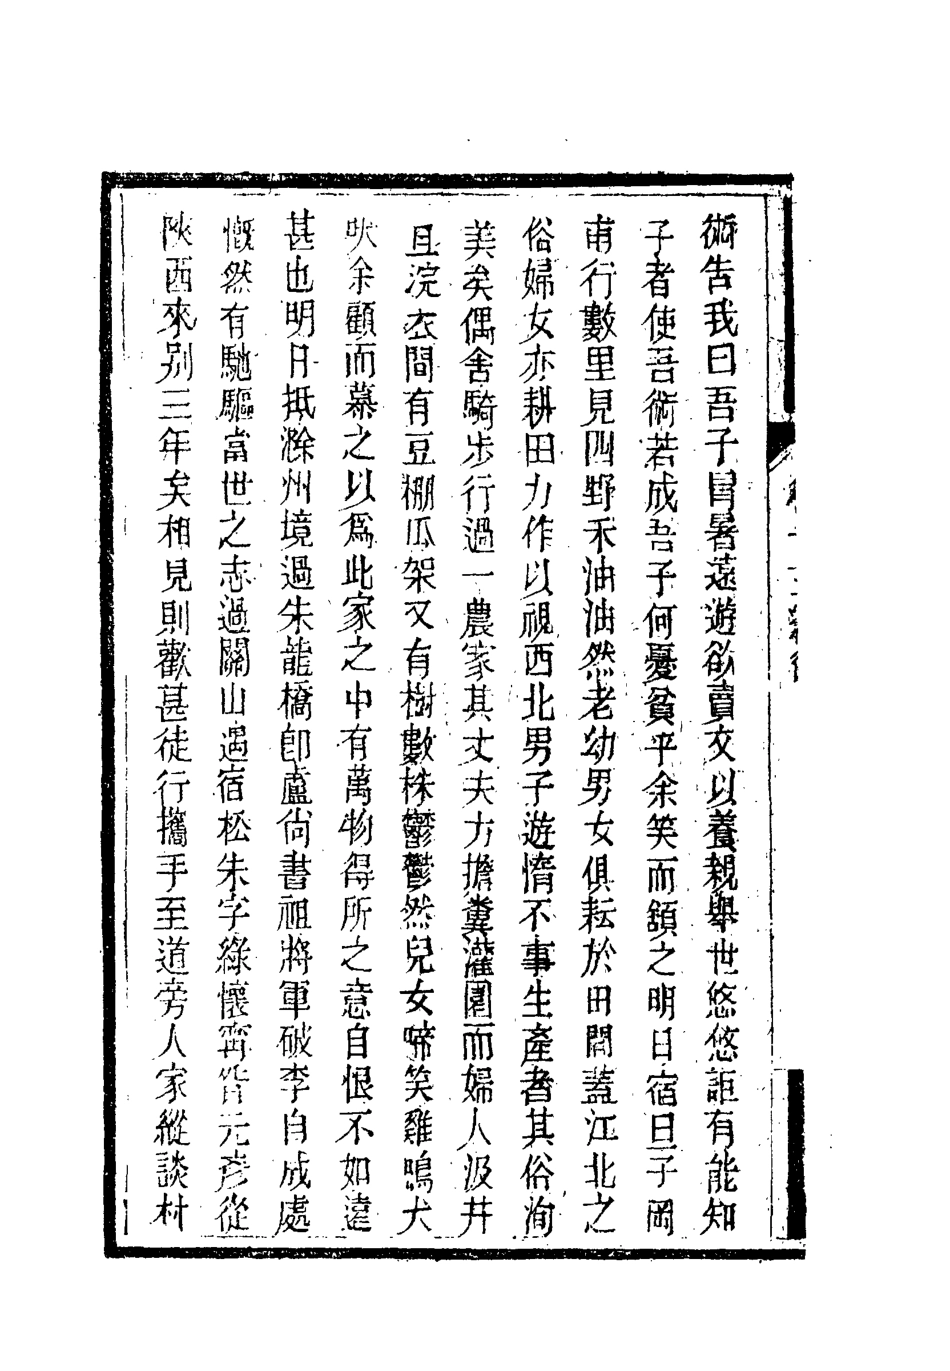 術告我曰吾子冒暑遠遊欲賣文以養親舉世悠悠詎有能知
子者使吾術若成吾子何憂貧乎余笑而頷之明日宿旦子岡
甫行數里見四野禾油油然老幼男女俱耘於田間蓋江北之
俗婦女亦耕田力作以視西北男子遊惰不事生產者其俗洵
美矣偶舍騎步行過一農家其丈夫方擔糞灌園而婦人汲井
且浣衣間有豆棚瓜架又有樹數株鬱鬱然兒女啼笑雞鳴犬
吠余顧而慕之以爲此家之中有萬物得所之意自恨不如遠
甚也明日抵滁州境過朱龍橋卽盧尙書祖將軍破李自成處
慨然有馳驅當世之志過關山遇宿松朱字綠懷寧昝元彥從
陝西來别三年矣相見則歡甚徒行攜手至道旁人家縱談村